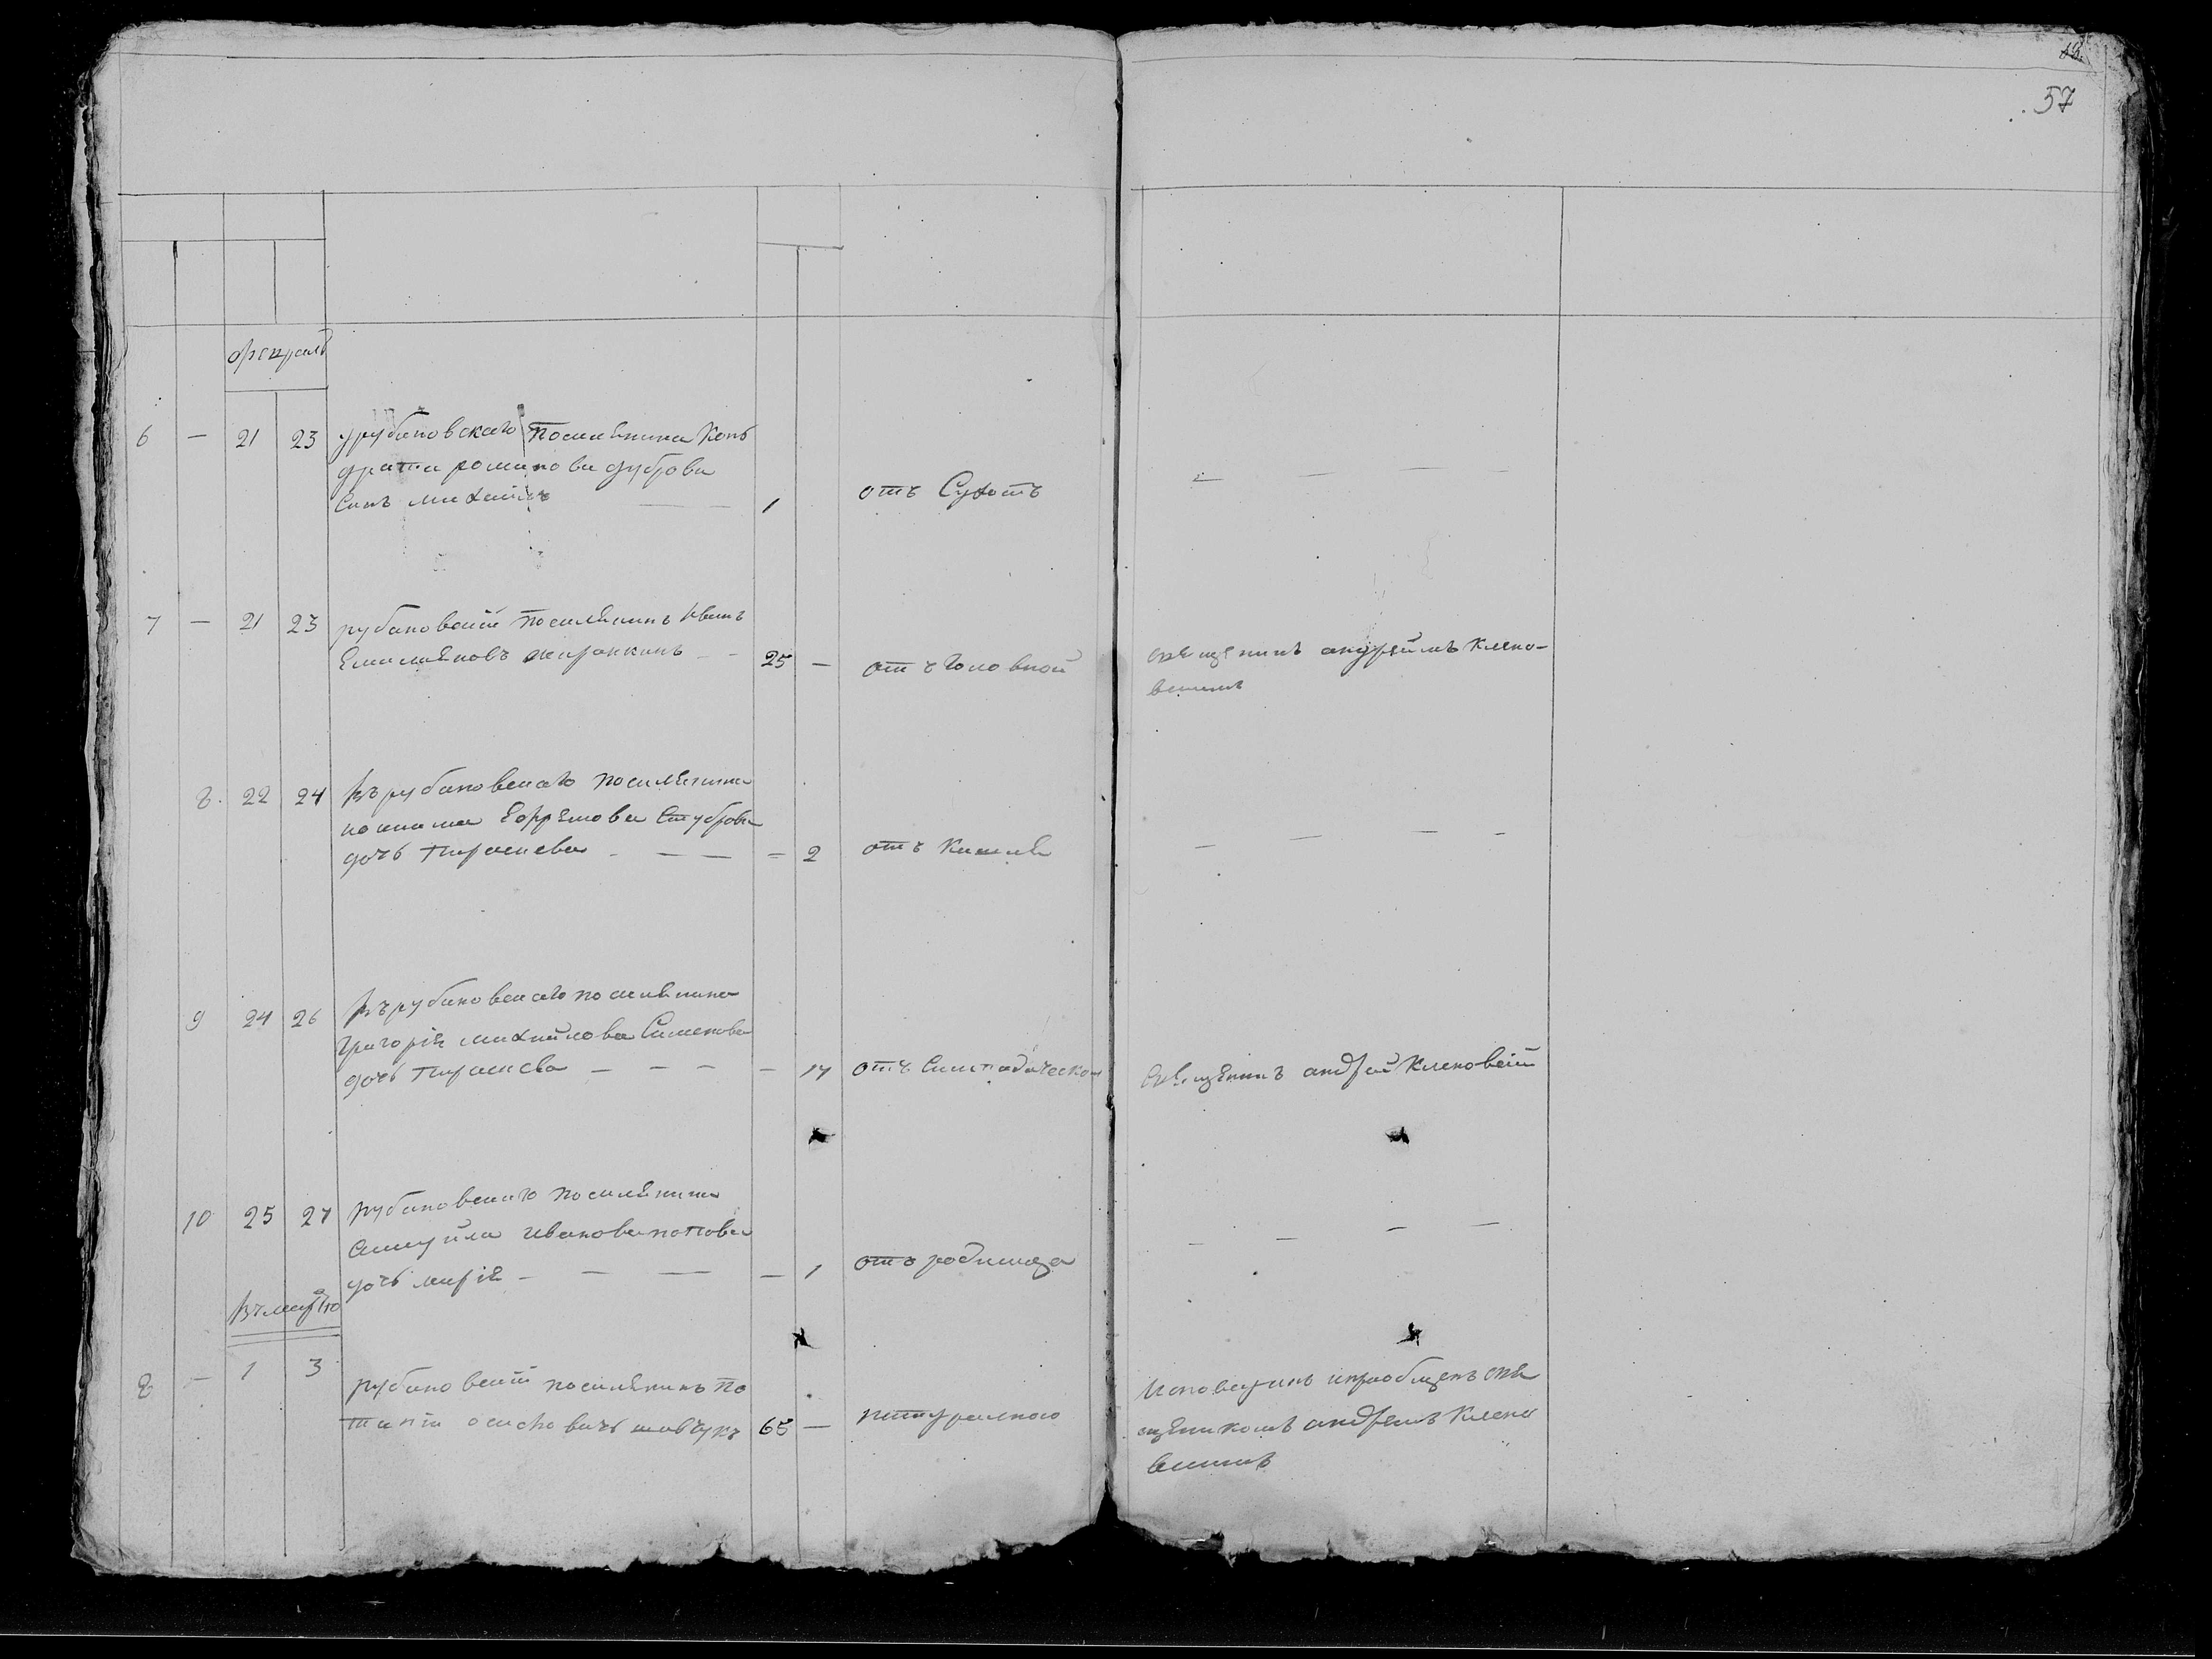 57
февраль
6 — 21 23 урубановскаго поселянина Кон
дратия романова дуброва
Синъ михаилъ — — 1 отъ Сухотъ — — — —
7 — 21 23 рубановский поселянинъ Иванъ
Емилияновъ — — 25 — отъ Головной священикъ андрейемъ Клено-
вскимъ
8 22 24 въ рубановскаго поселянина
иоакима Ефремова
дочь параскева — — — = 2 отъ Кашля — — — —
9 24 26 въ рубановскаго поселянина
Григорiя михайлова Сименова
дочь параскева — — — — 14 отъ священикъ андрей Кленовский
10 25 27 рубановскаго поселянина
самуйла иванова попова
дочь марiя — — — — 1 отъ родимца — — — —
въ марто
8 — 1 3 рубановский поселянинъ по
тапiй осиповичъ шавчукъ 65 — натуралною Исповеданъ ипрiобщенъ свя
щеникомъ андреемъ Клено
вскимъ